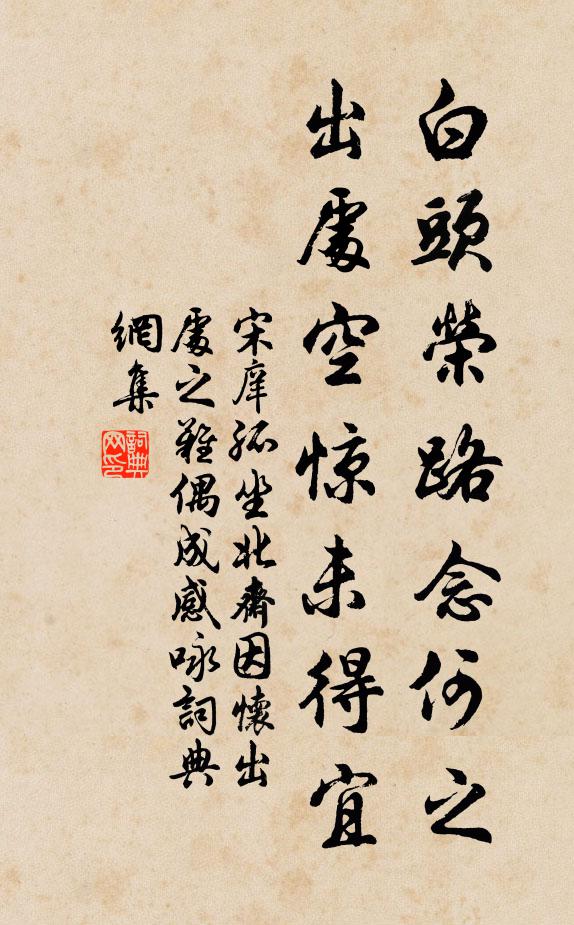 白頭榮路念何之
出處空惊未得宜
宋庠孤坐北齋因懷出
處之難偶成感咏詞典
網集
詞典
网印